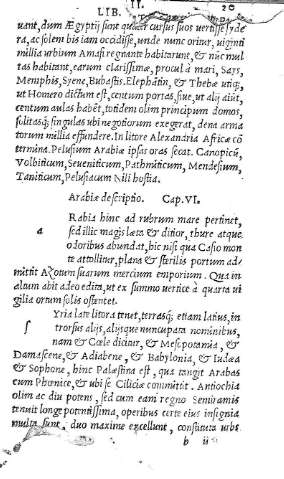 LIB. II. 20
uant, dum Ægyptij sunt quater cursus suos vertisse sydera
ra, ac solem bis iam occidisse, unde nunc oritur, uiginti
millia urbium Amasi regnante habitarunt, & nũc mul
tas habitant, earum clarissimæ, procul à mari, Says,
Memphis, Syene, Bubastis, Elephãtis, & Thebæ utiq;
ut Homero dictum est, centum portas, siue, ut alij aiũt,
centum aulas habẽt, totidem olim principum domos,
solitasq; singulas ubi negotiorum exegerat, dena arma
torum millia effundere. In litore Alexandria Africæ cõ
termina. Pelusium Arabiæ ipsas oras secat. Canopicũ,
Volbiticum, Seueniticum, Pathmiticum, Mendesium,
Taniticum, Pelusiacum Nili hostia.
Arabiæ descriptio. Cap. VI.
a Rabia hinc ad rubrum mare pertinet,
sed illic magis læta & ditior, thure atque
odoribus abundat, hic nisi qua Casio mon
te attollitur, plana & sterilis portum ad
mittit Azotum suarum mercium emporium. Qua in
altum abit adeo edita, ut ex summo uertice à quarta ui
gilia ortum solis ostentet.
ſ Yria late litora tenet, terrasq; etiam latius, in
trorsus alijs, alijsque nuncupata nominibus,
nam & Cœle dicitur, & Mesopotamia, &
Damascene, & Adiabene, & Babylonia, & Iudæa
& Sophone, hinc Palæstina est, qua tangit Arabas
cum Phœnice, & ubi se Ciliciæ committit. Antiochia
olim ac diu potens, sed cum eam regno Semiramis
tenuit longe potentissima, operibus certe eius insignia
multa sunt, duo maxime excellunt, constituta urbs
b ii